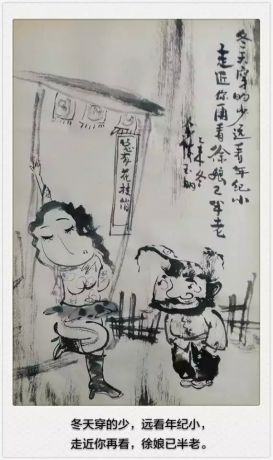 冬天穿的少远看年纪小
走近你再看徐娘已半老
乙未冬
总有花枝俏
冬天穿的少，远看年纪小，
走近你再看，徐娘已半老。